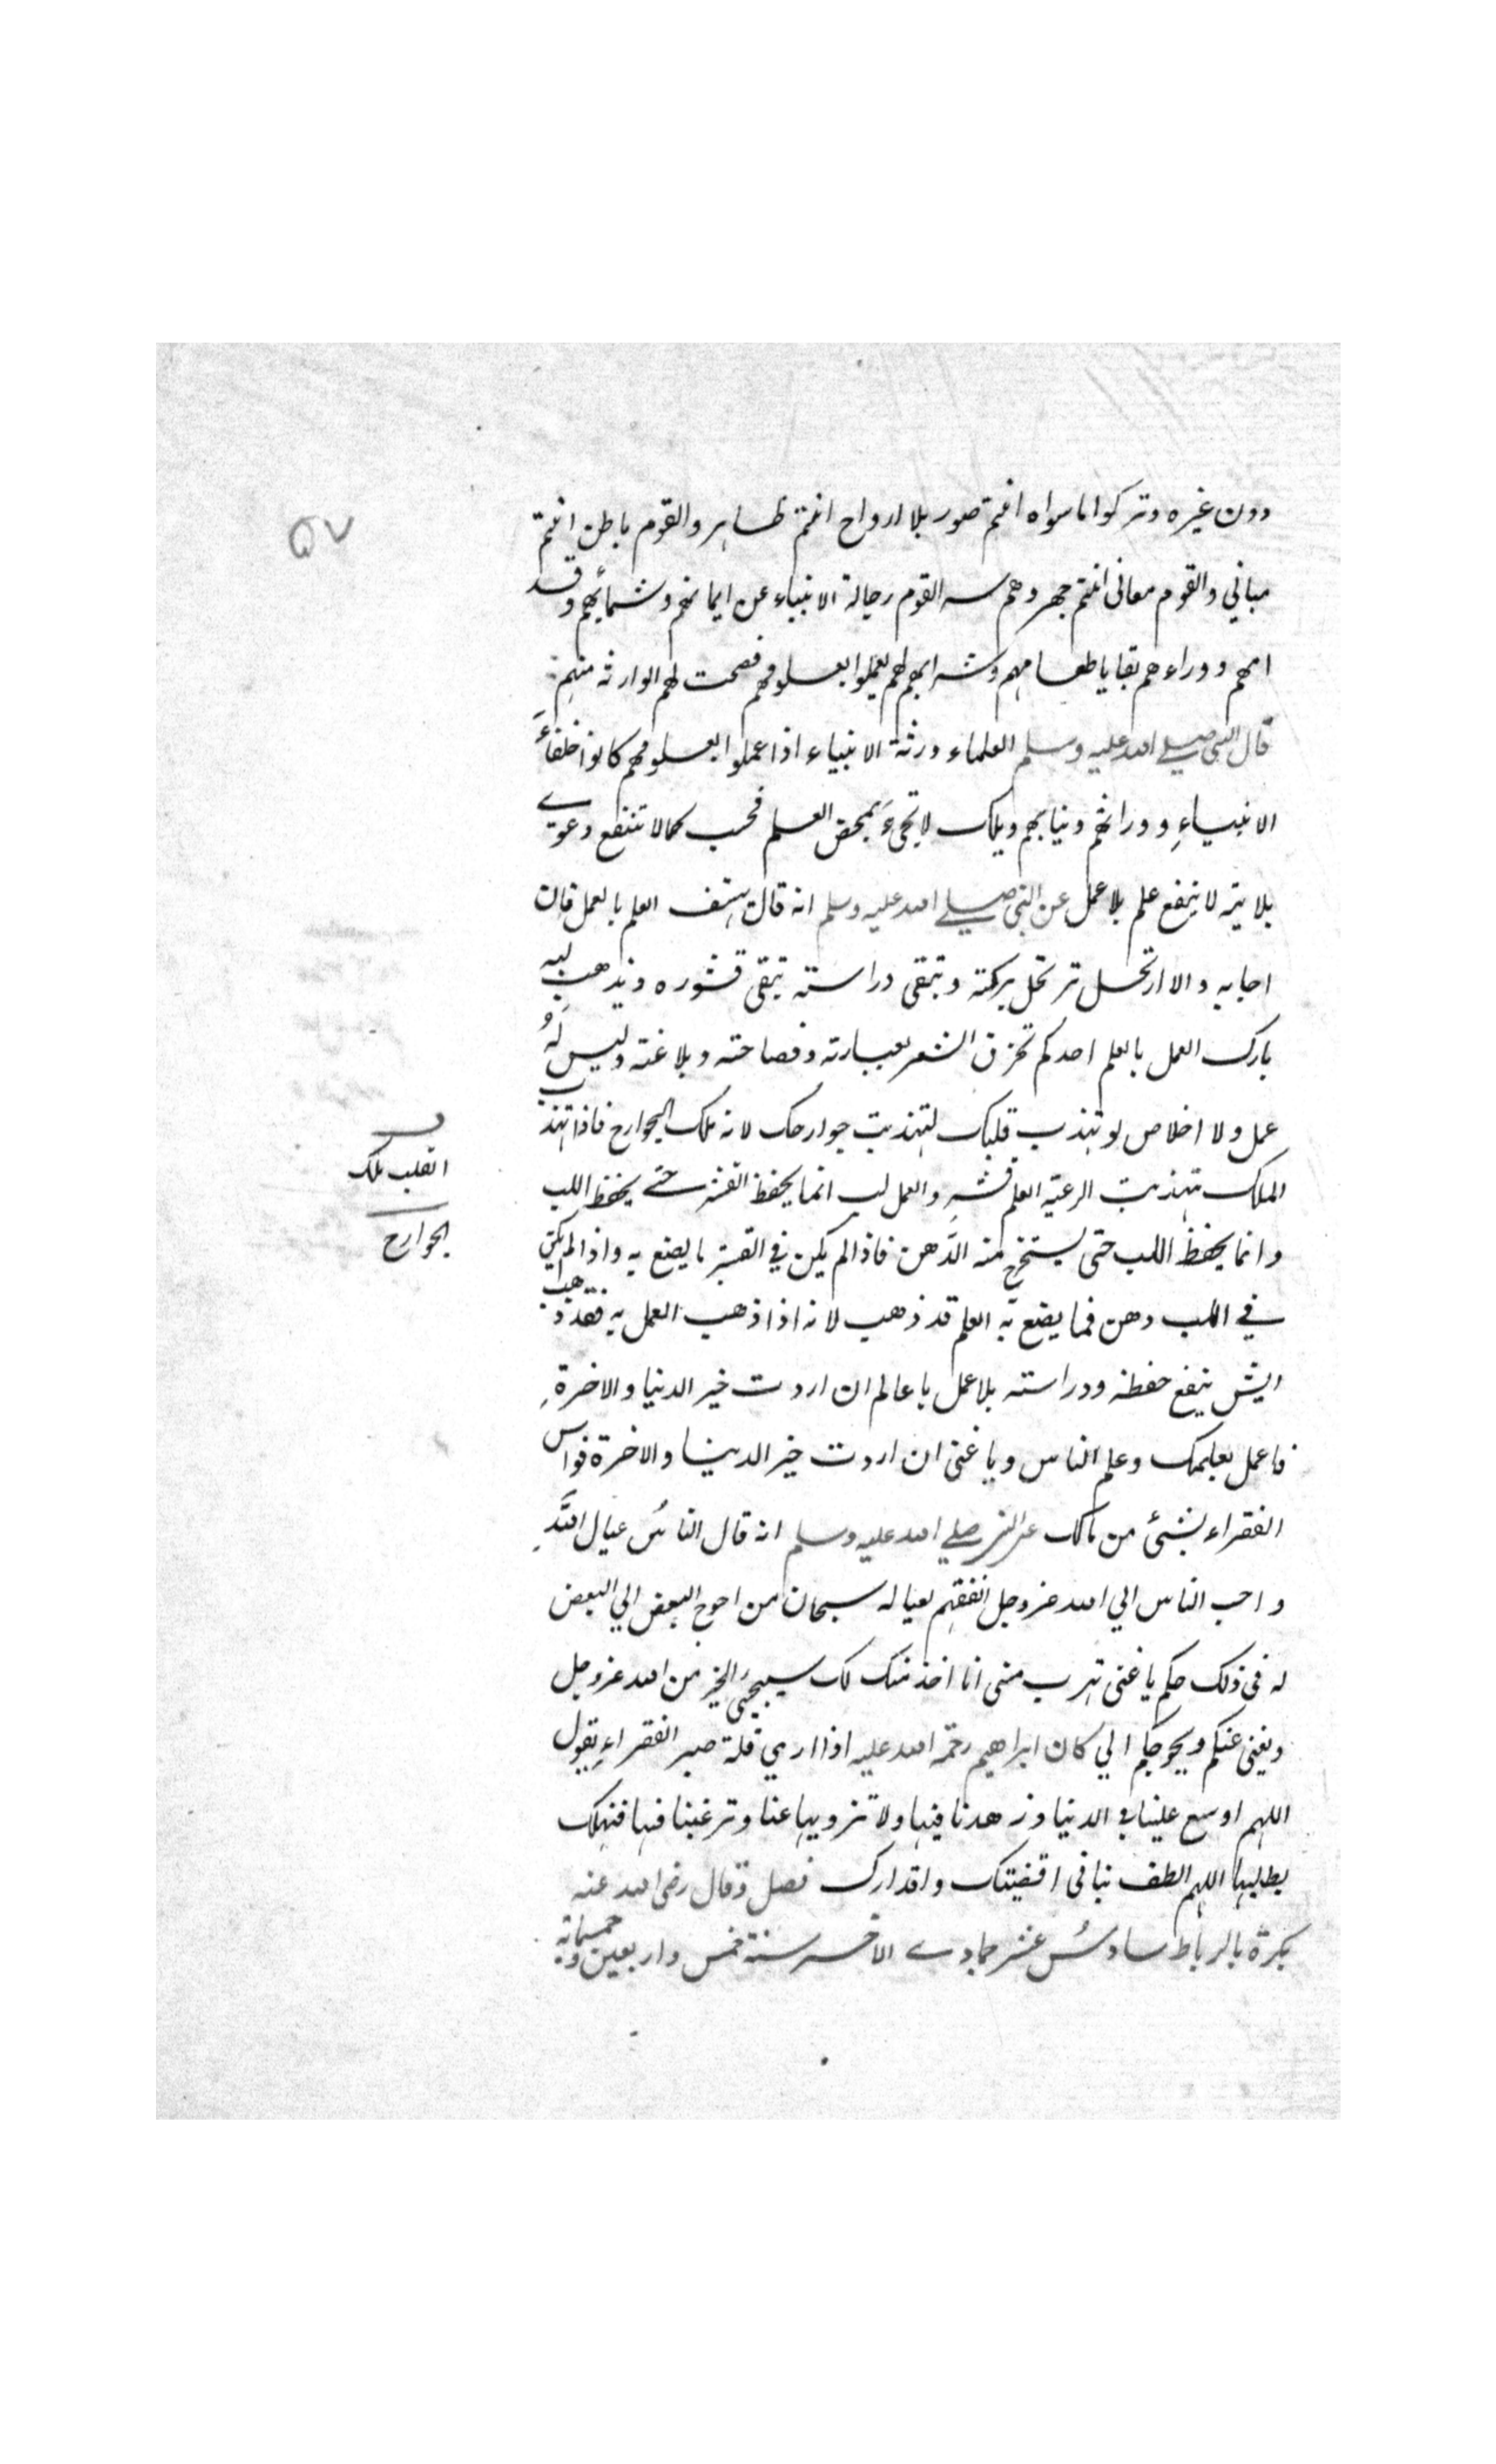 دون غيره وتركوا ما سواه انتم صور بلا ارواح انتم ظاهر والقوم باطن انتم
مباني والقوم معاني انتم جهر وهم سر القوم رجالة الانبياء عن ايمانهم وشمائلهم وقد
امهم ووراءهم بقايا طعامهم وشرابهم لهم يعملوا بعلومهم فصحت لهم الوارثة منهم
قال النبي صلي الله عليه وسلم العلماء ورثة الانبياء اذا عملوا بعلومهم كانوا خلفاءَ
الانبياءِ ووراثهم ونيابهم ويلك لا تجيءَ بمحض العلم فحسب كما لا تنفع دعوى
بلا بينة لا ينفع علم بلا عمل عن النبي صلي الله عليه وسلم انه قال يهتف العلم بالعمل فان
اجابه والا ارتحل ترتحل بركته وتبقى دراسته تبقى قشوره ويذهب لبه
يا تارك العمل بالعلم احدكم الشعر بعبارته وفصاحته وبلاغته وليس لهُ
عمل ولا اخلاص لو تهذب قلبك لتهذبت جوارحك لانه ملك الجوارح فاذا تهذب
الملك تهذبت الرعية العلم قشر والعمل لب انما يحفظ القشر حتى يحفظ اللب
وانما يحفظ اللب حتى يستخرج منه الدَّهن فاذا لم يكن في القشر ما يصنع به واذا لم يكن
في اللب دهن فما يصنع به العلم قد ذهب لانه اذا ذهب العمل به فقد ذهب
ايش ينفع حفظه ودراسته بلا عمل يا عالم ان اردت خير الدنيا والاخرةِ
فاعمل بعلمك وعلم الناس ويا غني ان اردت خير الدنيا والاخرة فواس
الفقراء بشيئ من مالك عن النبي صلي الله عليه وسلم انه قال الناسُ عيال اللَّهِ
واحب الناس الي الله عز وجل انفعهم لعياله سبحان من احوج البعض الي البعض
له في ذلك حكم يا غني تهرب مني انا اخذ منك لك سيجيئ الخير من الله عز وجل
ويغني عنكم ويحوجكم الي كان ابراهيم رحمة الله عليه اذا اري قلة صبر الفقراءِ يقول
اللهم اوسع علينا في الدنيا وزهدنا فيها ولا تزويها عنا وترغبنا فيها فنهلك
بطلبها اللهم الطف بنا في اقضيتك واقدارك فصل وقال رضي الله عنه
بكرة بالرباط سادسُ عشر جمادي الاخر سنة خمس واربعين وخمسمائة
القلب ملك
الجوارح
٥٧